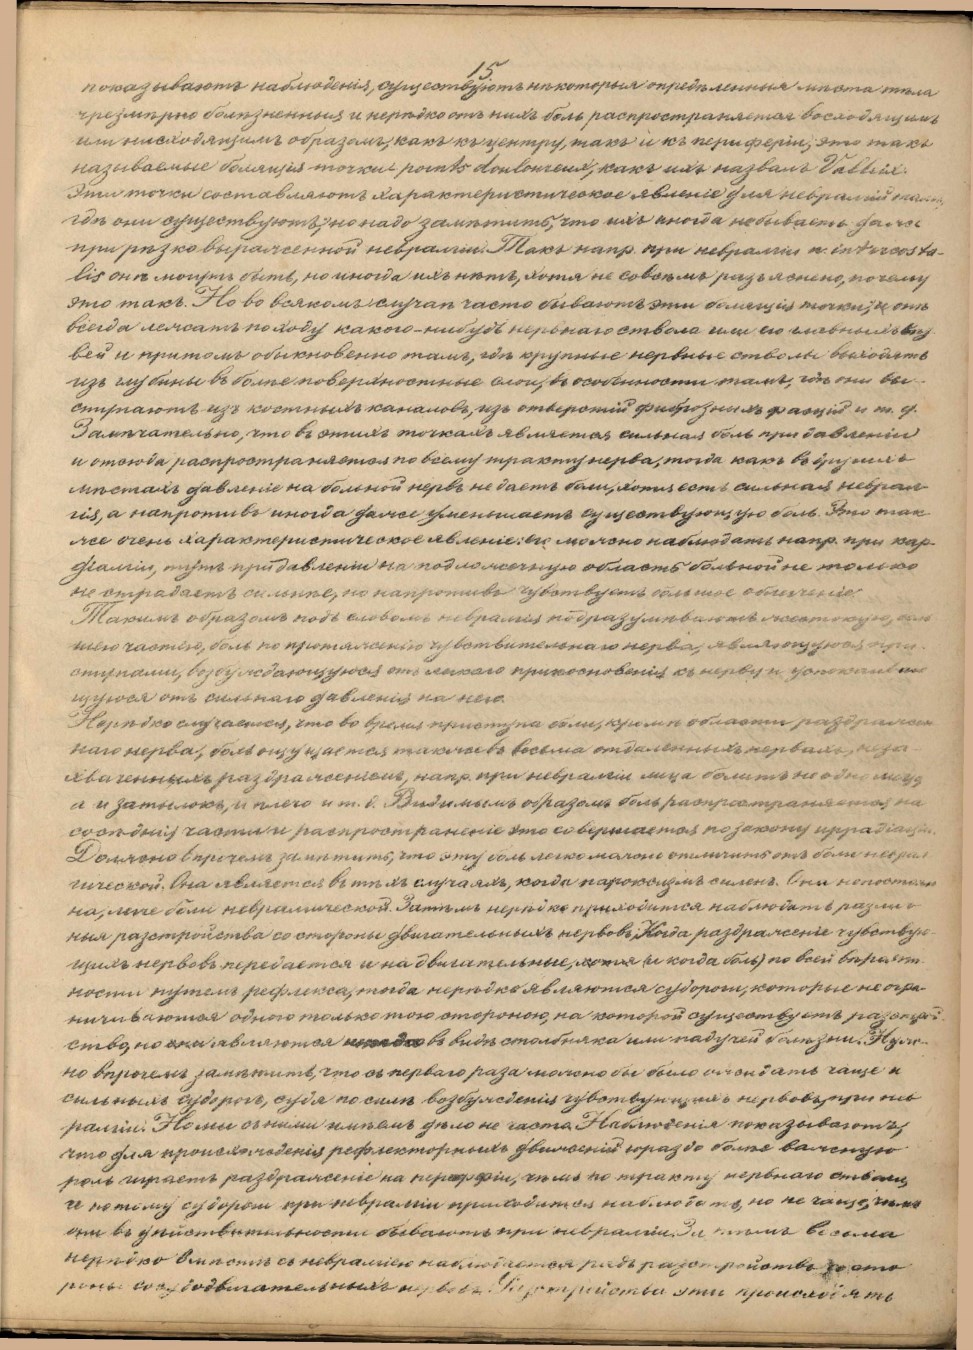 15
показываютъ наблюденія, существуютъ нѣкоторыя опредѣленныя мѣста тѣла
чрезмѣрно болѣзненныя и нерѣдко отъ нихъ боль распространяется восходящимъ
или нисходящимъ образомъ, какъ къ центру, такъ и къ периферіи; это такъ
называемые болящія точки points douloureux, какъ ихъ назвалъ Valleix.
Эти точки составляютъ характеристическое явленіе для невралгій тамъ,
гдѣ они существуютъ; но надо замѣтить, что ихъ иногда небываетъ даже
при рѣзко выраженной невралгіи. Такъ напр. при невралгіи n. intercosta-
lis онѣ могутъ быть, но иногда ихъ нѣтъ, хотя не совсѣмъ разъяснено, почему
это такъ. Но во всякомъ случаѣ часто бываютъ эти болящія точки, и онѣ
всегда лежатъ по ходу какого-нибудь нервнаго ствола или его главныхъ вѣт-
вей и притомъ обыкновенно тамъ, гдѣ крупные нервные стволы выходятъ
изъ глубины въ болѣе поверхностные слои, въ особенности тамъ, гдѣ они вы-
ступаютъ изъ костныхъ каналовъ, изъ отверстій фиброзныхъ фасцій и т. д.
Замѣчательно, что въ этихъ точкахъ является сильная боль при давленіи
и отсюда распространяется по всему тракту нерва, тогда какъ въ другихъ
мѣстахъ давленіе на больной нервъ не даетъ боли, хотя есть сильная неврал-
гія, а напротивъ иногда даже уменьшаетъ существующую боль. Это так
же очень характеристическое явленіе: его можно наблюдать напр. при кар-
діалгіи, тутъ при давленіи на подложечную область больной не только
не страдаетъ сильнѣе, но напротивъ чувствуетъ большое облегченіе.
Такимъ образомъ подъ словомъ невралгія подразумѣваютъ жестокую, боль
шею частію, боль по протяженію чувствительнаго нерва, являющуюся при-
ступами, возбуждающуюся отъ легкаго прикосновенія къ нерву и успокаиваю
щуюся отъ сильнаго давленія на него.
Нерѣдко случается, что во время приступа боли, кромѣ области раздражен
наго нерва, боль ощущается также въ весьма отдаленныхъ нервахъ, неза-
хваченныхъ раздраженіемъ, напр. при невралгіи лица болитъ не одно лицо,
а и затылокъ, и плечо и т. д. Видимымъ образомъ боль распространяется на
сосѣднія части и распространеніе это совершается по закону иррадіаціи.
Должно впрочемъ замѣтить, что эту боль легко можно отличить отъ боли неврал
гической. Она является въ тѣхъ случаяхъ, когда пароксизмъ силенъ. Она непостоян
на, боли невралгической. Затѣмъ нерѣдко приходится наблюдать различ
ныя разстройства со стороны двигательныхъ нервовъ. Когда раздраженіе чувствую-
щихъ нервовъ передается и на двигательные, хотя (и когда боль) по всей вѣроят-
ности путемъ рефлекса, тогда нерѣдко являются судороги, которые не огра-
ничиваются одною только тою стороною, на которой существуетъ разстрой-
ство, но они являются въ видѣ столбняка или падучей болѣзни. Нуж-
но впрочемъ замѣтить, что съ перваго раза можно бы было ожидать чаще и
сильныхъ судорогъ, судя по силѣ возбужденія чувствующихъ нервовъ, при нев
ралгіи. Но мы съ ними имѣемъ дѣло не часто. Наблюденія показываютъ,
что для происхожденія рефлекторныхъ движеній гораздо болѣе важную
роль играетъ раздраженіе на периферіи, чѣмъ по тракту нервнаго ствола,
и потому судороги при невралгіи приходится наблюдать, но не чаще, чѣмъ
они въ дѣйствительности бываютъ при невралгіи. За тѣмъ весьма
нерѣдко вмѣстѣ съ невралгіею наблюдается рядъ разстройствъ со сто
роны сосудодвигательныхъ нервовъ. Разстройства эти происходятъ